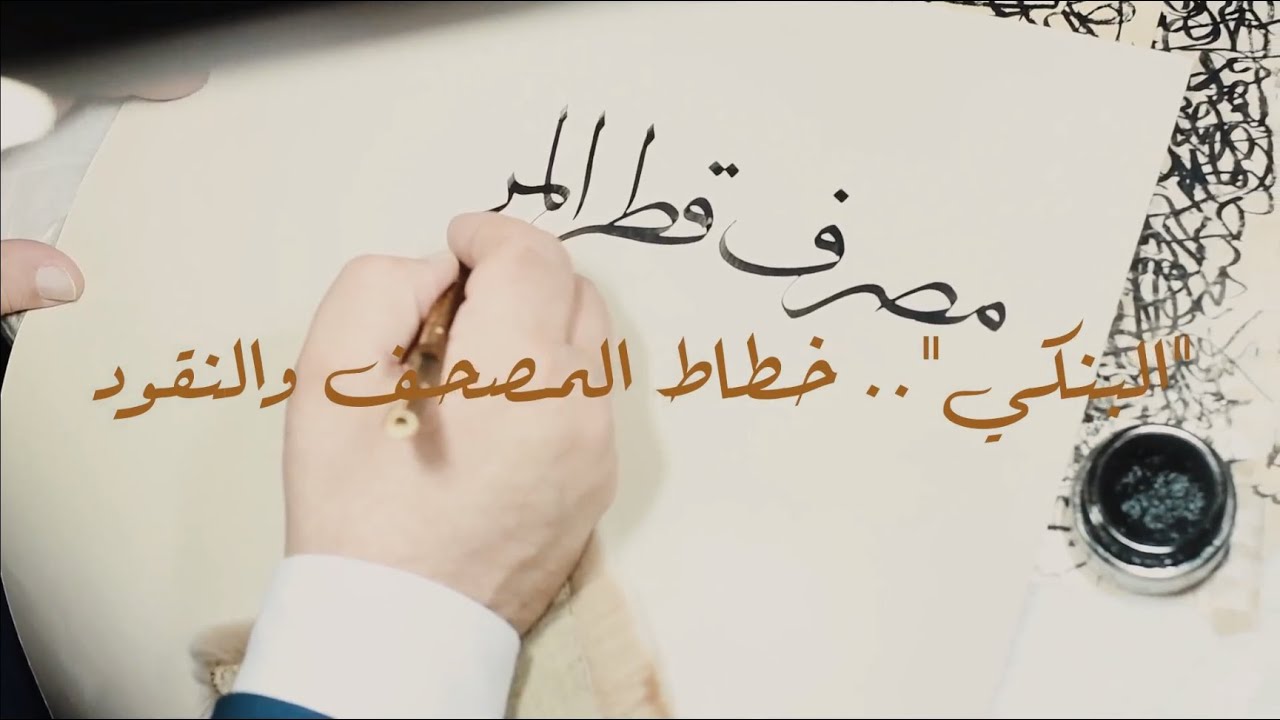 مصرف قطر المر
"البنكي".. خطاط المصحف والنقود